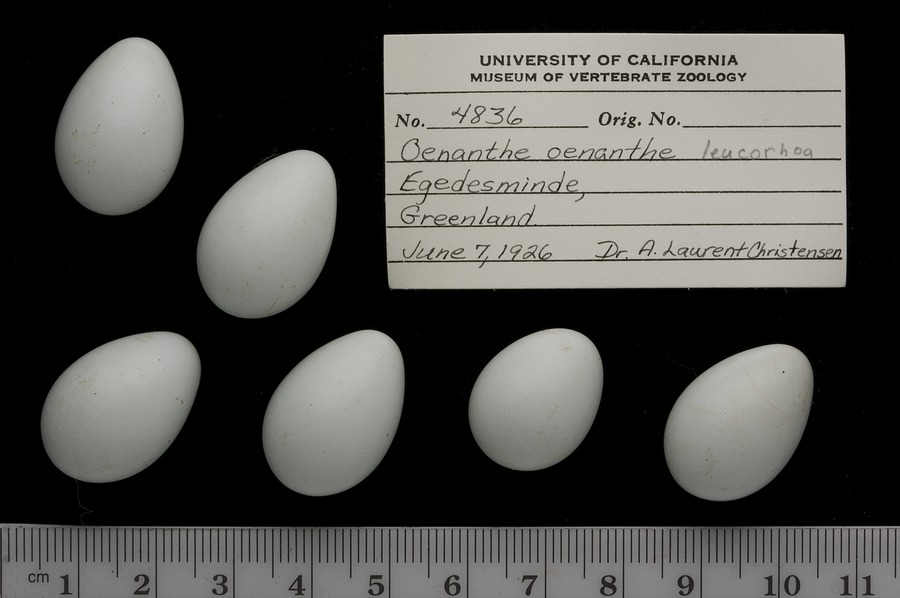 UNIVERSITY OF CALIFORNIA
MUSEUM OF VERTEBRATE ZOOLOGY
No. 4836 Orig. No.
Oenanthe oenanthe leucorhoa
Egedesminde,
Greenland
June 7, 1926 Dr. A. Laurent Christensen
cm 1 2 3 4 5 6 7 8 9 10 11